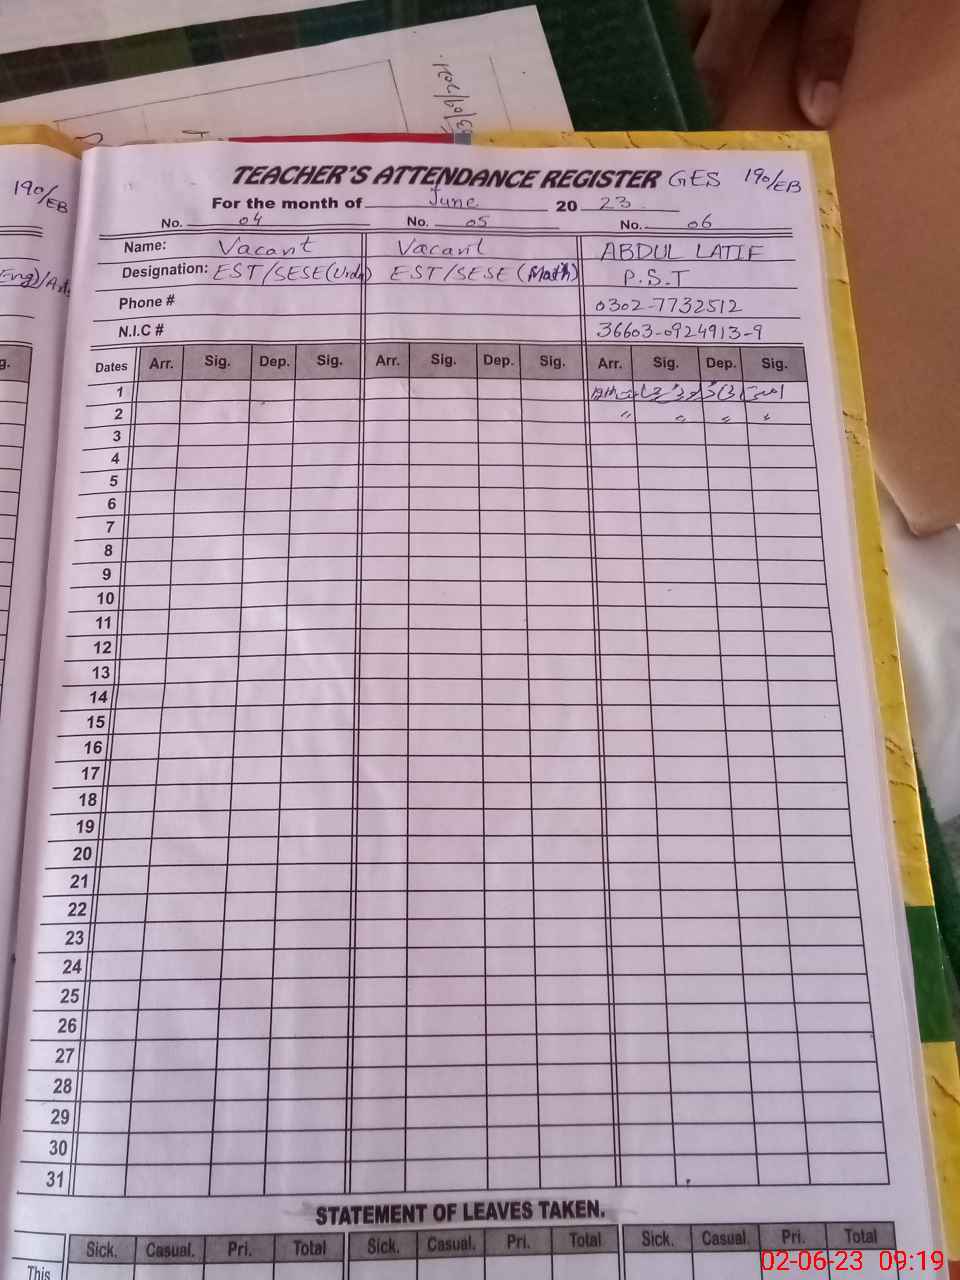 TEACHER'S ATTENDANCE REGISTER GES 190/EB
190/EB
For the month of June 20 23
No. 04 No. 05 No. 06
Name: Vacant Vacant ABDUL LATIF
Designation: EST/SESE(Urdu) EST/SESE (Math) P.S.T
Phone # 0302-7732512
N.I.C # 36603-0924913-9
Dates Arr. Sig. Dep. Sig. Arr. Sig. Dep. Sig. Arr. Sig. Dep. Sig.
1
2 〃 〃 〃 〃
3
4
5
6
7
8
9
10
11
12
13
14
15
16
17
18
19
20
21
22
23
24
25
26
27
28
29
30
31
STATEMENT OF LEAVES TAKEN.
Sick. Casual. Pri. Total Sick. Casual. Pri. Total Sick. Casual. Pri. Total
This
02-06-23 09:19